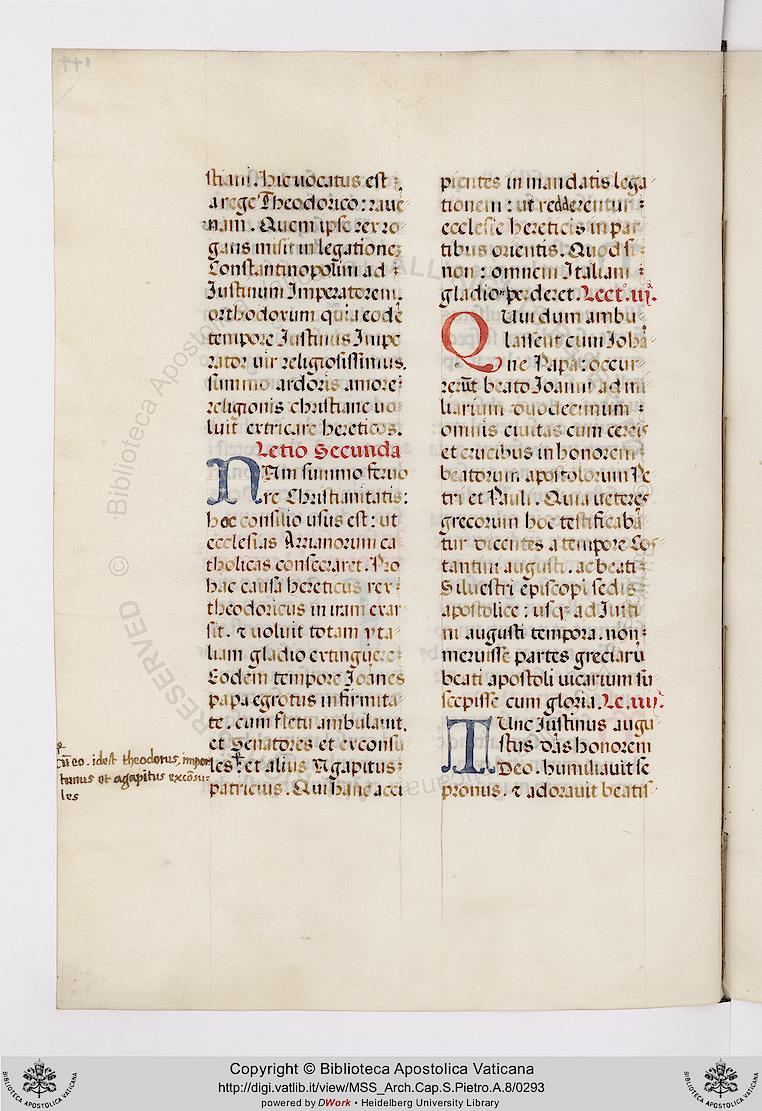 stiani. hic uocatus est
a rege Theodorico: raue
nam. Quem ipse rex ro
gans misit in legationez
Constantinopolim ad
Justinum Imperatorem.
orthodoxum quia eodē
tempore Justinus Impe
rator uir religiosissimus.
summo ardoris amore
religionis christiane uo
luit extricare hereticos.
Letio Secunda
NAm summo feruo
re Christianitatis:
hoc consilio usus est: ut
ecclesias Arrianorum ca
tholicas consecraret. Pro
hac causa hereticus rex
theodoricus in iram exar
sit. ⁊ uoluit totam yta
liam gladio extinguere
Eodem tempore Joānes
papa egrotus infirmita
te. cum fletu ambulauit.
et Senatores et exconsu
les et alius Agapitus
patricius. Qui hanc acci
cū eo. idest theodorus, impor
tunus et agapitus excōsu
les
pientes in mandatis lega
tionem: ut redderentur
ecclesie hereticis in par
tibus orientis. Quod si
non: omnem Italiam
gladio perderet. Lect. iij.
QUui dum ambu
lassent cum Johā
ne Papa: occur
rerūt beato Joanni ad mi
liarium duodecimum
omnis ciuitas cum cereis
et crucibus in honorem
beatorum apostolorum Pe
tri et Pauli. Quia ueteres
grecorum hoc testificabā
tur dicentes a tempore Cos
tantini augusti. ac beati
Siluestri episcopi sedis
apostolice: usq ad Justi
ni augusti tempora. non
meruisse partes greciarū
beati apostoli uicarium su
scepisse cum gloria. Le. iiij.
TUnc Justinus augu
stus dās honorem
Deo. humiliauit se
pronus. ⁊ adorauit beatis
© Biblioteca Apostolica Vaticana
Copyright © Biblioteca Apostolica Vaticana
http://digi.vatlib.it/view/MSS_Arch.Cap.S.Pietro.A.8/0293
powered by DWork • Heidelberg University Library
BIBLIOTECA APOSTOLICA VATICANA
BIBLIOTECA APOSTOLICA VATICANA